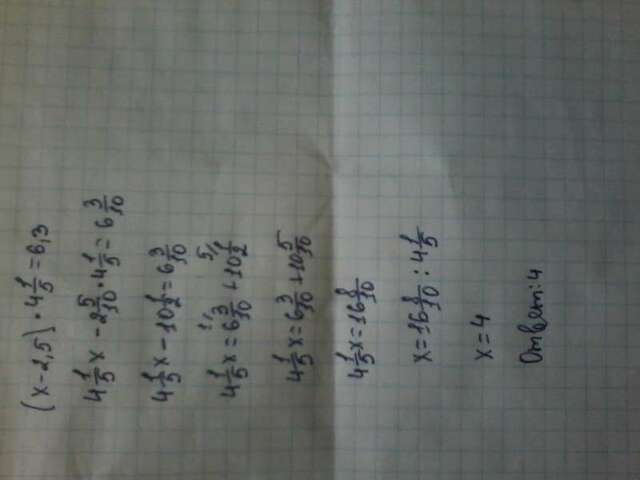 (x-2,5)·4 1/5=6,3
4 1/5 x-2 5/10·4 1/5=6 3/10
4 1/5 x-10 1/2=6 3/10
4 1/5 x=6 3/10 1/+10 1/2 5/
4 1/5 x=6 3/10+10 5/10
4 1/5 x=16 8/10
x=16 8/10:4 1/5
x=4
Ответ:4